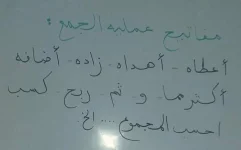 مفاتيح عملية الجمع :
أعطاه - أهداه - زاده - أضافه
أكثرهما - و - ثم - ربح - كسب
احسب المجموع .... الخ